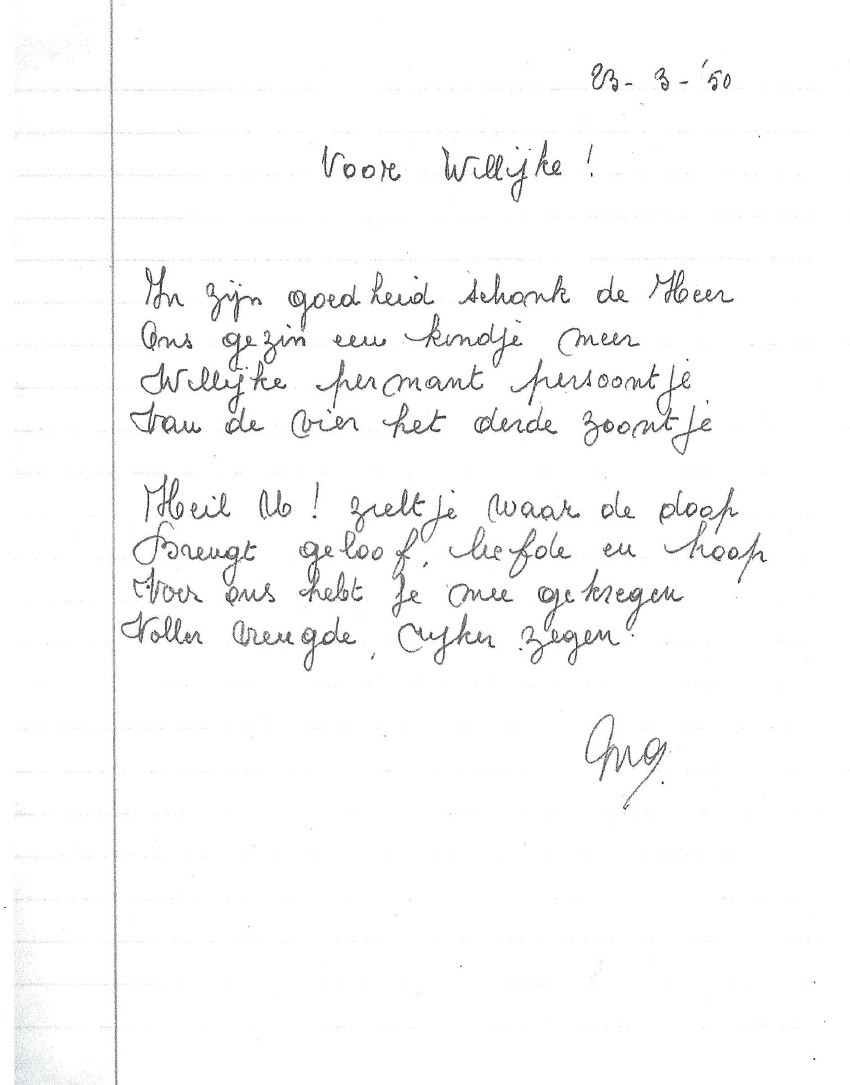 23- 3- '50
Voor Willijke!
In zijn goedheid schonk de Heer
Ons gezin een kindje meer
Willijke permant persoontje
Van de vier het derde zoontje
Heil U! zieltje waar de doop
Brengt geloof, liefde en hoop
Voor ons hebt je mee gekregen
Voller vreugde, rijker zegen.